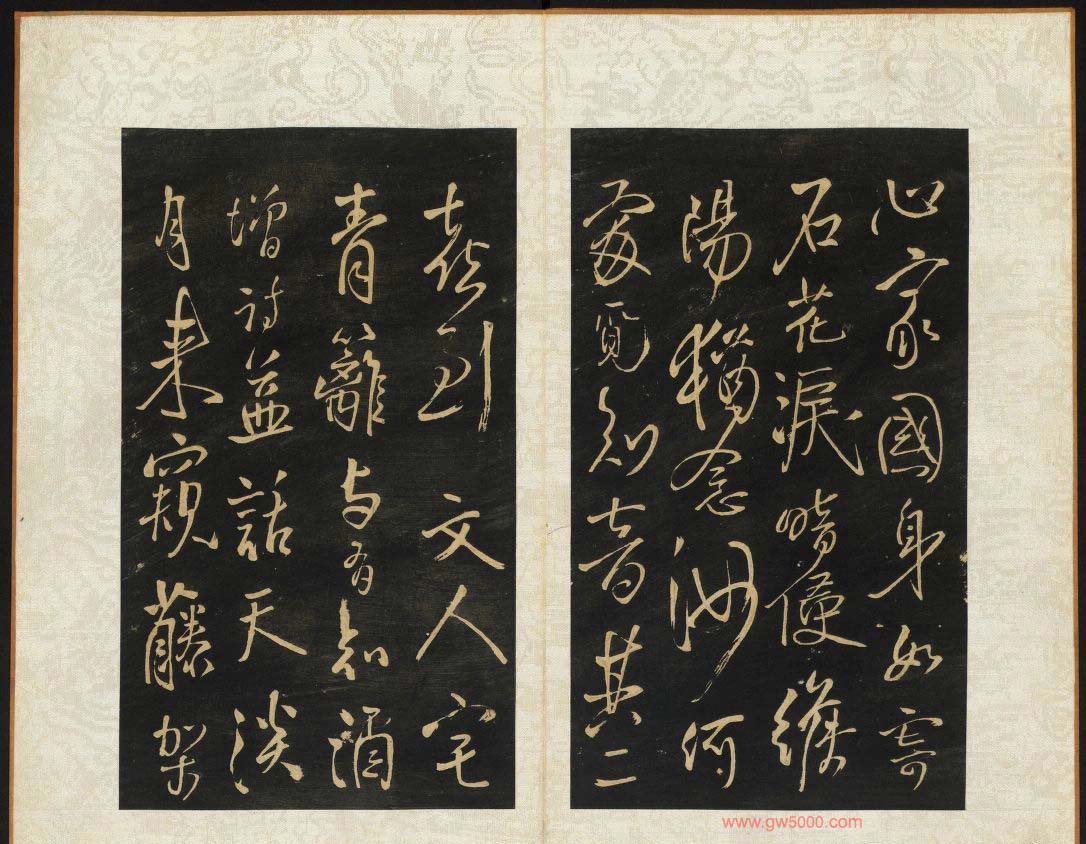 心家國身如寄
石花淚暗使縱
陽猶念汝何
處覓知音其二
喜到文人宅
青籬與有知酒
增詩益話天淡
月來窺藤架
www.gw5000.com